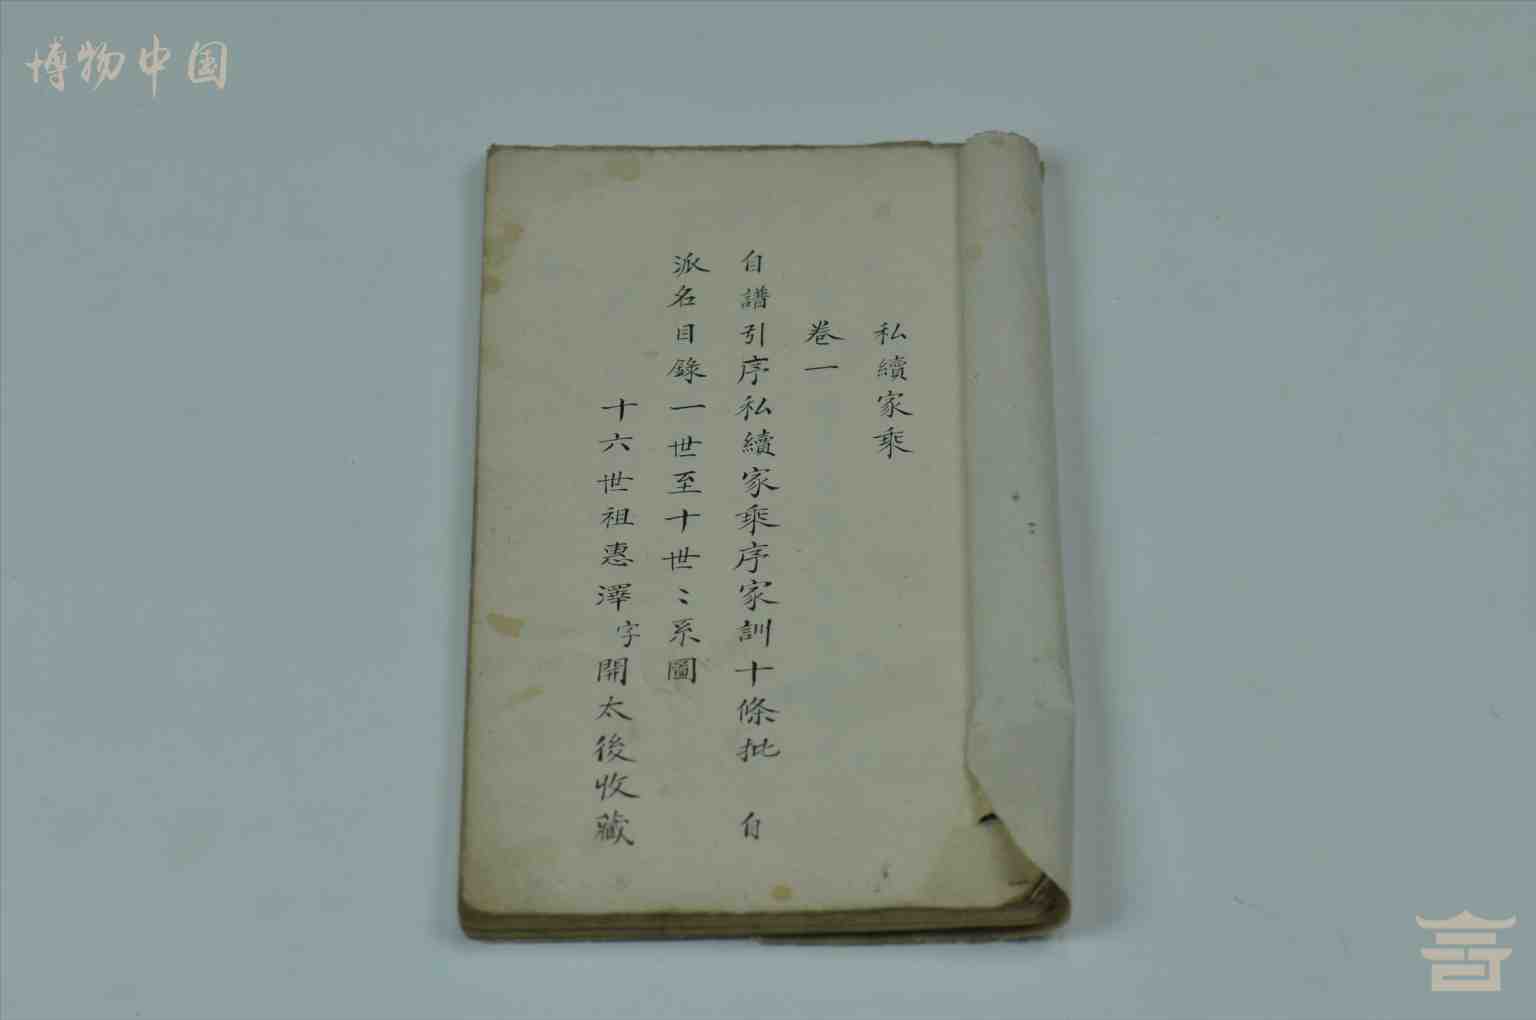 博物中国
私續家乘
卷一
自譜引序私續家乘序家訓十條批 自
派名目錄一世至十世〻系圖
十六世祖惠澤字開太後收藏